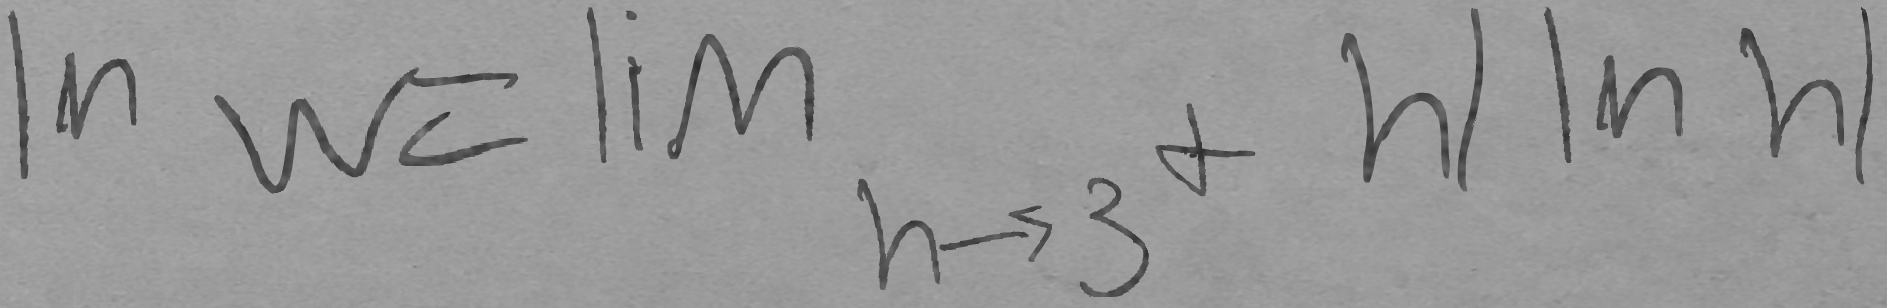 ln w = lim h→3⁺ h|ln h|